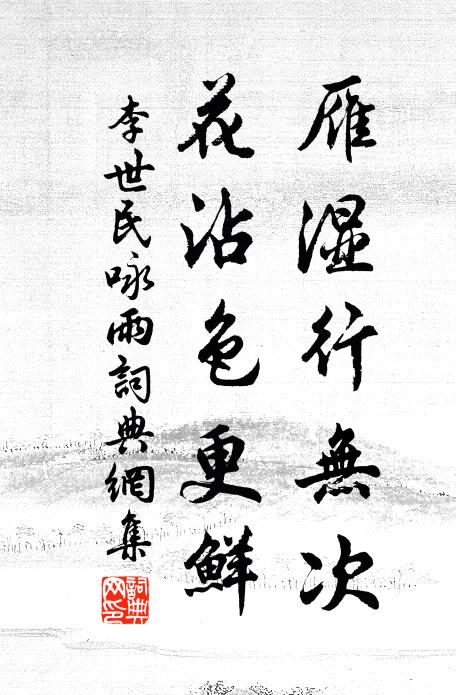 雁濕行無次
花沾色更鮮
李世民咏雨詞典網集
詞典
网印